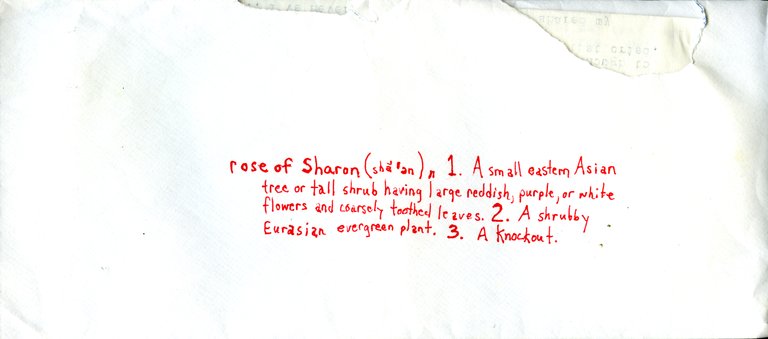 rose of Sharon (shâr'ən), n 1. A small eastern Asian
tree or tall shrub having large reddish, purple, or white
flowers and coarsely toothed leaves. 2. A shrubby
Eurasian evergreen plant. 3. A knockout.